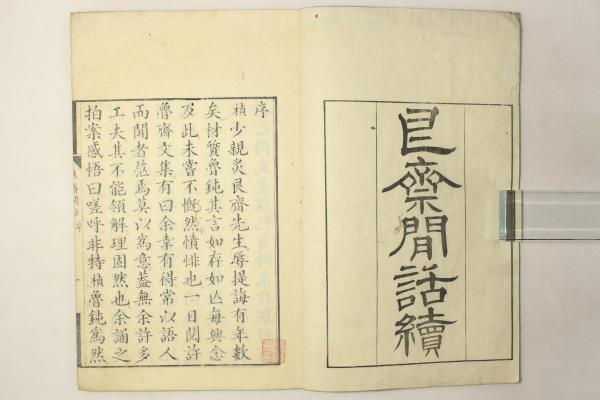 艮齋閒話續
序
楨少親炙艮齋先生辱提誨有年數
矣材質魯鈍其言如存如亡每興念
及此未嘗不慨然憤悱也一日閱許
魯齋文集有曰余幸有得常以語人
而聞者茫焉莫以為意蓋無余許多
工夫其不能領解理固然也余誦之
拍案感悟曰嗟呼非特楨魯鈍為然